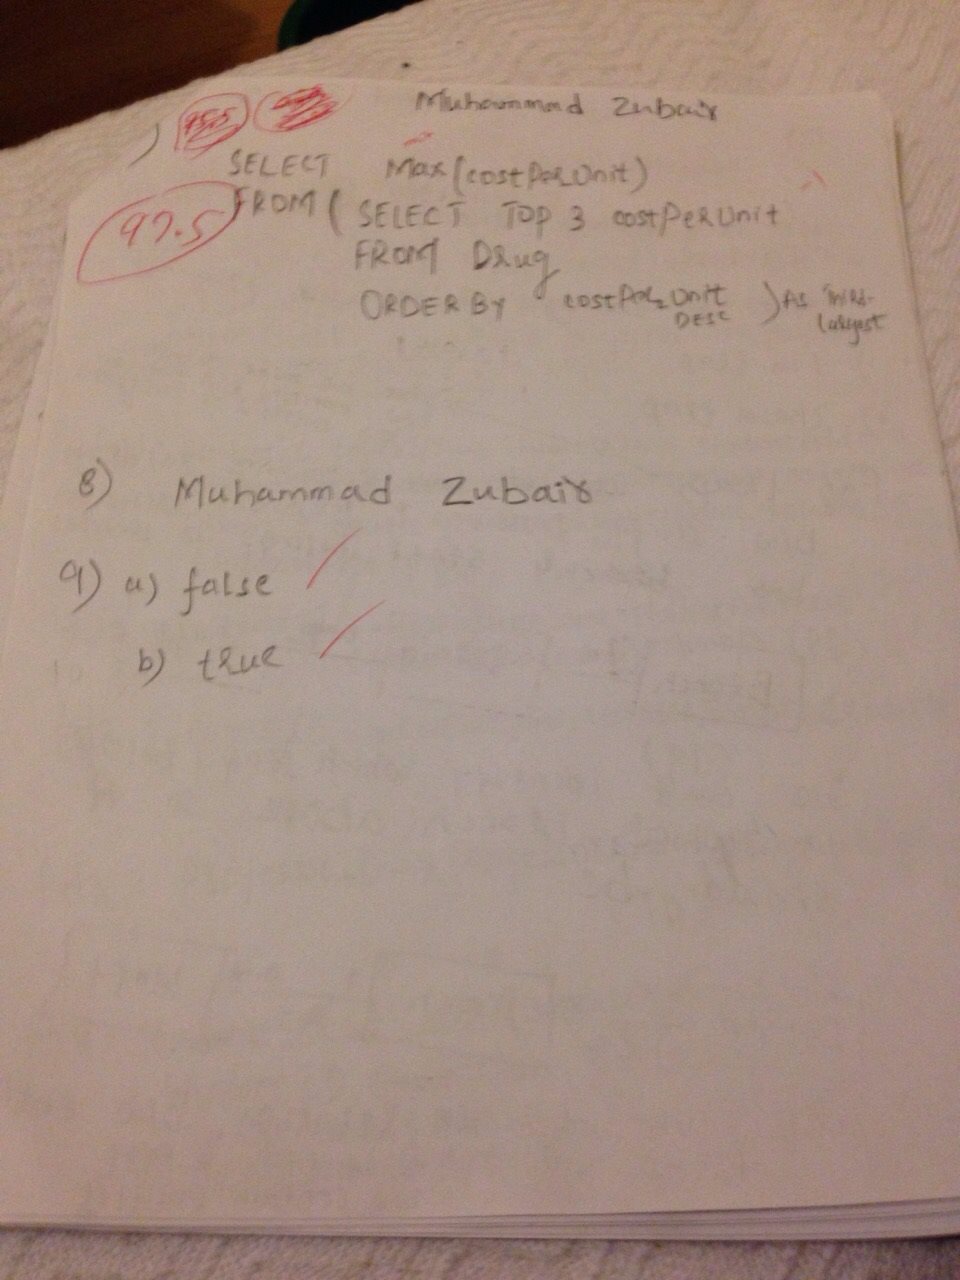 Muhammad Zubair
95.5
97.5
SELECT Max(costPerUnit)
FROM ( SELECT TOP 3 costPerUnit
FROM Drug
ORDER BY costPerUnit DESC ) As Third-
largest
8) Muhammad Zubair
9) a) false
b) true